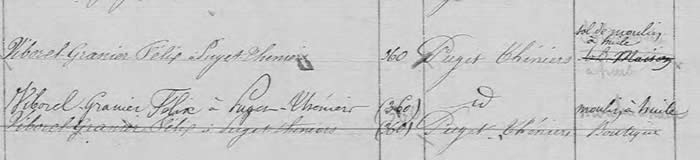 sol de moulin
à huile
Viborel Granier Félix à Puget Théniers 360 Puget Théniers Maison
Viborel Granier Félix à Puget-Théniers (360) id moulin à huile
Viborel Granier Félix à Puget Théniers (360) Puget Théniers Boutique